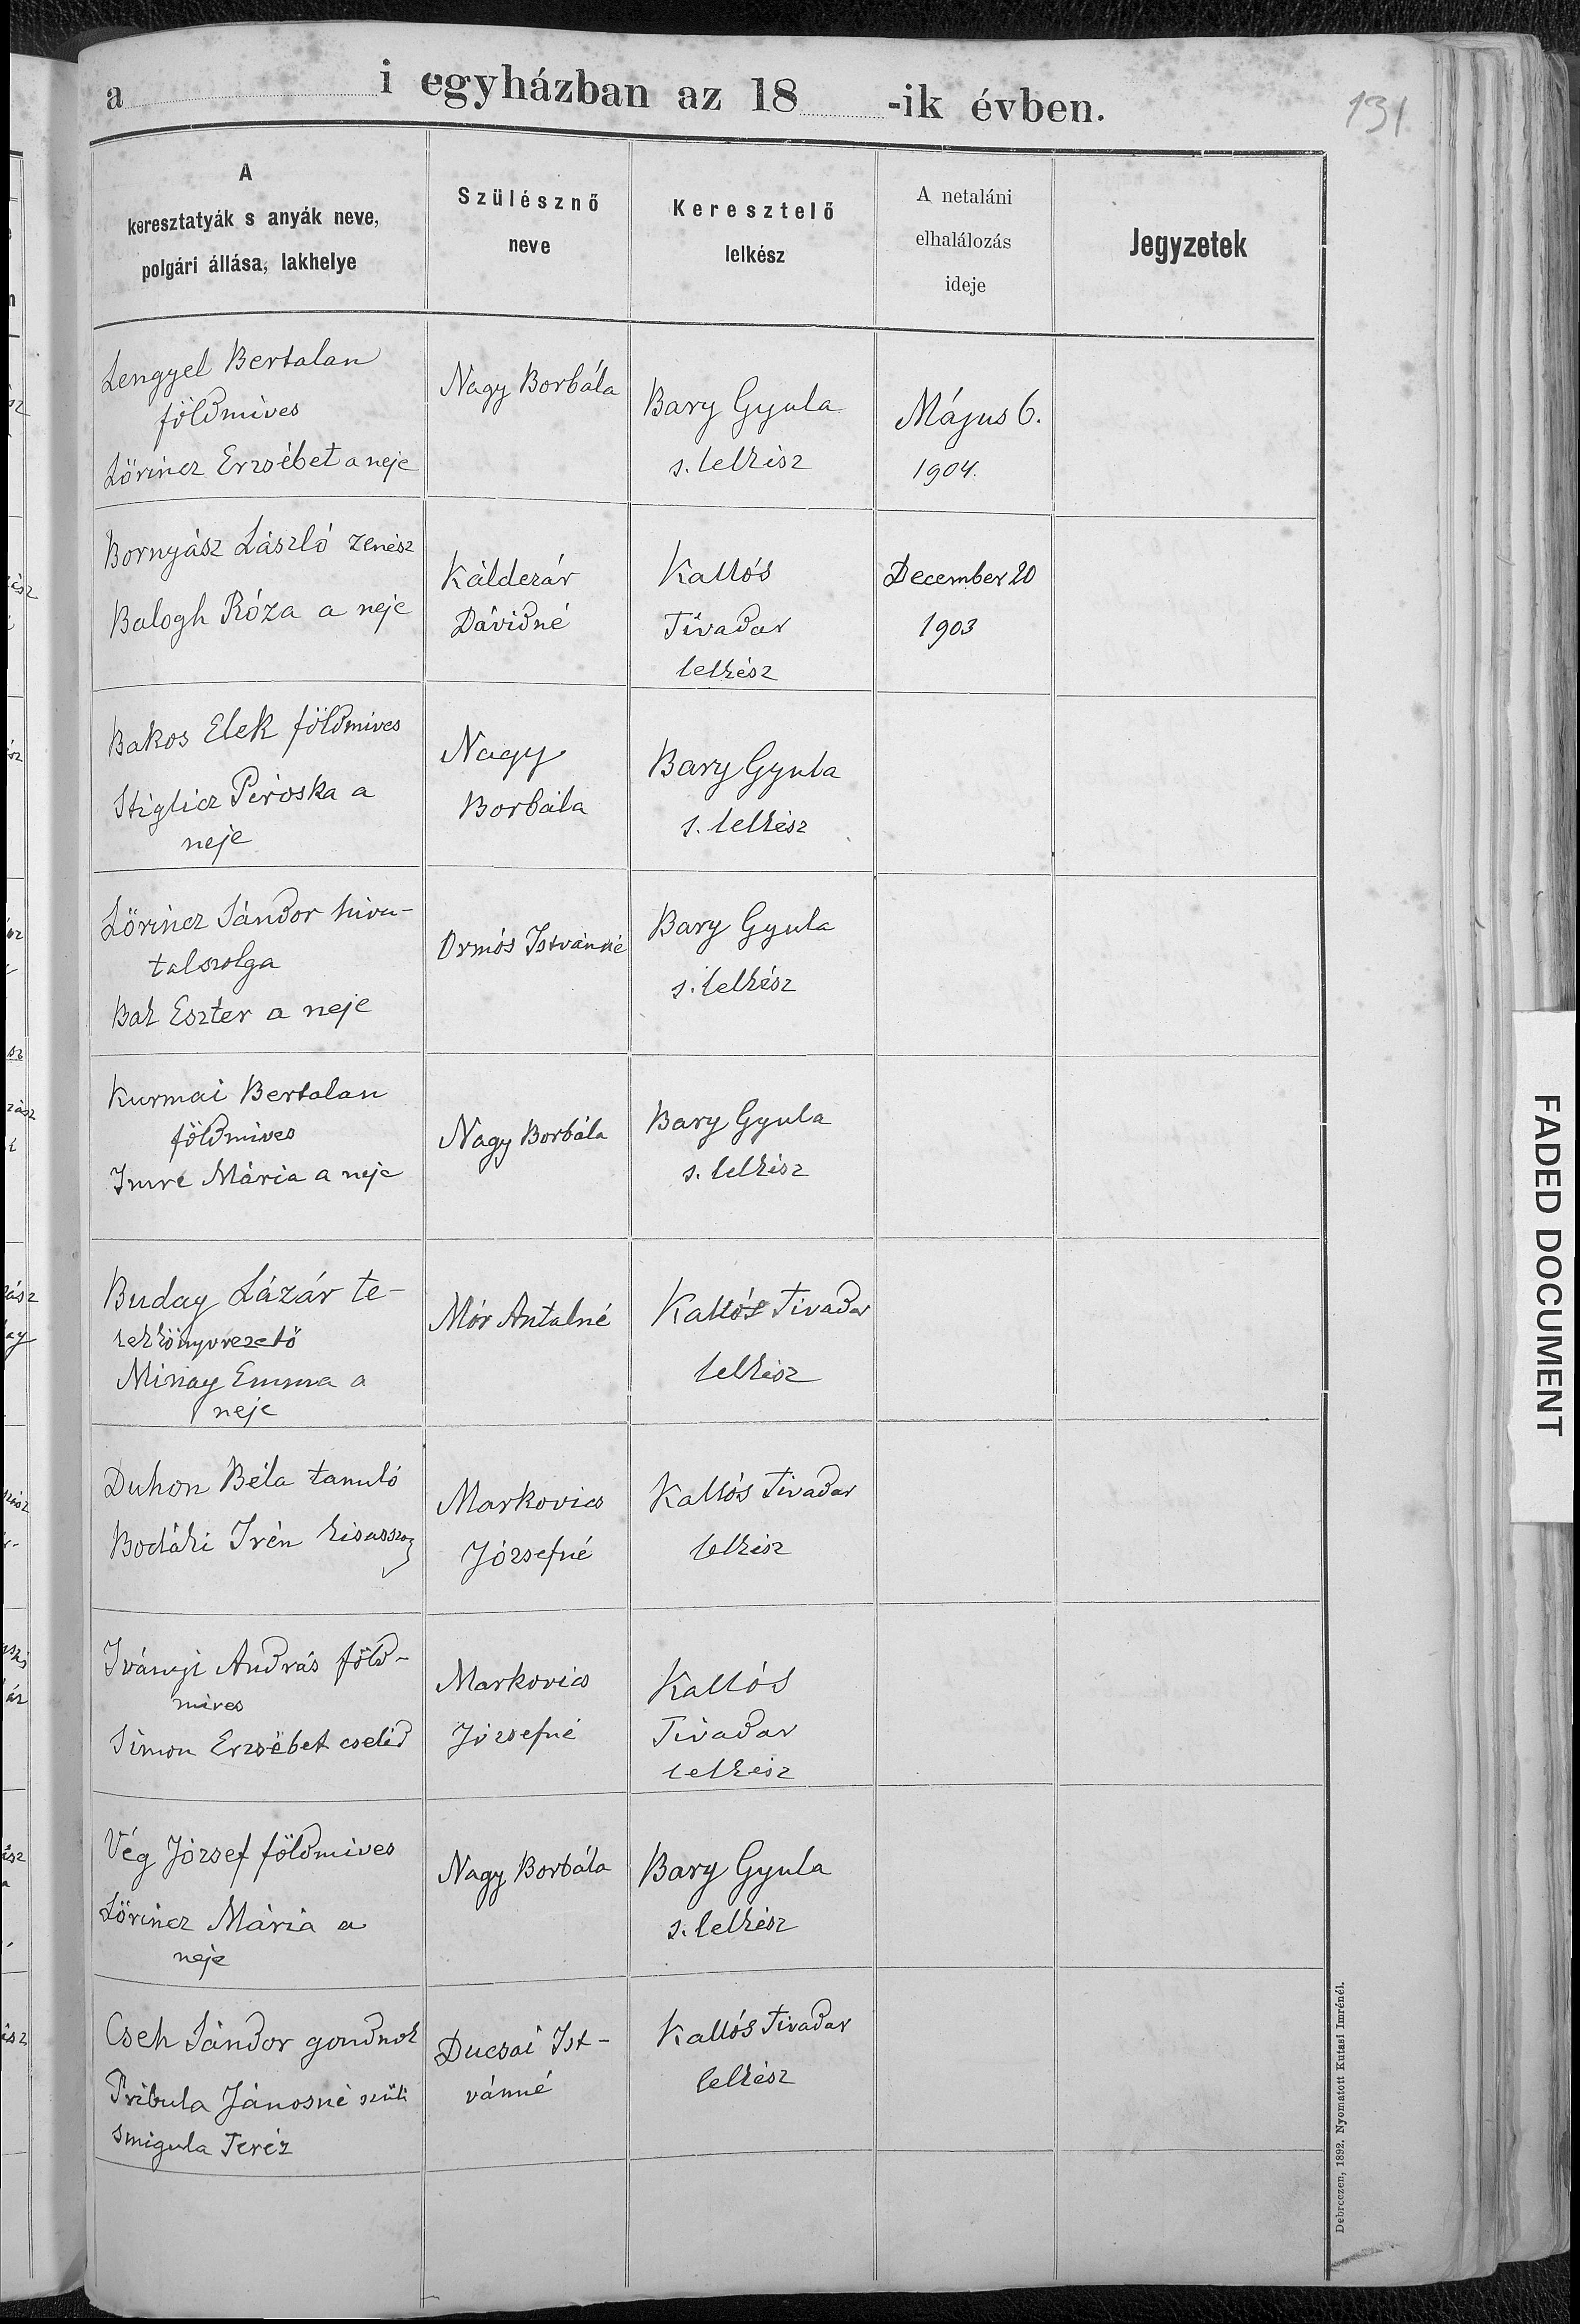 a i egyházban az 18 -ik évben.
131
A
keresztatyák s anyák neve,
polgári állása, lakhelye
Szülésznő
neve
Keresztelő
lelkész
A netaláni
elhalálozás
ideje
Jegyzetek
Lengyel Bertalan
földmives
Lőrincz Erzsébet a neje
Nagy Borbála
Bary Gyula
s. lelkész
Május 6.
1904.
Bornyász László zenész
Balogh Róza a neje
Kálderár
Dávidné
Kallós
Tivadar
lelkész
December 20
1903
Bakos Elek földmives
Stiglicz Piroska a
neje
Nagy
Borbála
Bary Gyula
s. lelkész
Lőrincz Sándor hiva-
talszolga
Bak Eszter a neje
Ormós Istvánné
Bary Gyula
s. lelkész
Kurmai Bertalan
földmives
Imre Mária a neje
Nagy Borbála
Bary Gyula
s. lelkész
Buday Lázár te-
lekkönyvvezető
Minay Emma a
neje
Mór Antalné
Kallós Tivadar
lelkész
Duhon Béla tanuló
Bodáki Irén kisasszony
Markovics
Józsefné
Kallós Tivadar
lelkész
Iványi András föld-
mives
Simon Erzsébet cseléd
Markovics
Józsefné
Kallós
Tivadar
lelkész
Vég József földmives
Lőrincz Mária a
neje
Nagy Borbála
Bary Gyula
s. lelkész
Cseh Sándor gondnok
Pribula Jánosné szül:
Smigula Teréz
Ducsai Ist-
vánné
Kallós Tivadar
lelkész
Debreczen, 1892. Nyomatott Kutasi Imrénél.
FADED DOCUMENT